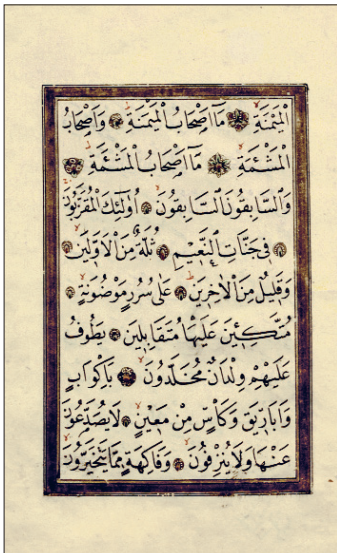 الْمَيْمَنَةِ مَٓا اَصْحَابُ الْمَيْمَنَةِ وَاَصْحَابُ
الْمَشْئَمَةِ مَٓا اَصْحَابُ الْمَشْئَمَةِ
وَالسَّابِقُونَ السَّابِقُونَ اُو۬لٰٓئِكَ الْمُقَرَّبُونَ
ف۪ي جَنَّاتِ النَّع۪يمِ ثُلَّةٌ مِنَ الْاَوَّل۪ينَ
وَقَل۪يلٌ مِنَ الْاٰخِر۪ينَ عَلٰى سُرُرٍ مَوْضُونَةٍ
مُتَّكِـ۪ٔينَ عَلَيْهَا مُتَقَابِل۪ينَ يَطُوفُ
عَلَيْهِمْ وِلْدَانٌ مُخَلَّدُونَ بِاَكْوَابٍ
وَاَبَار۪يقَ وَكَأْسٍ مِنْ مَع۪ينٍ لَا يُصَدَّعُونَ
عَنْهَا وَلَا يُنْزِفُونَ وَفَاكِهَةٍ مِمَّا يَتَخَيَّرُونَ